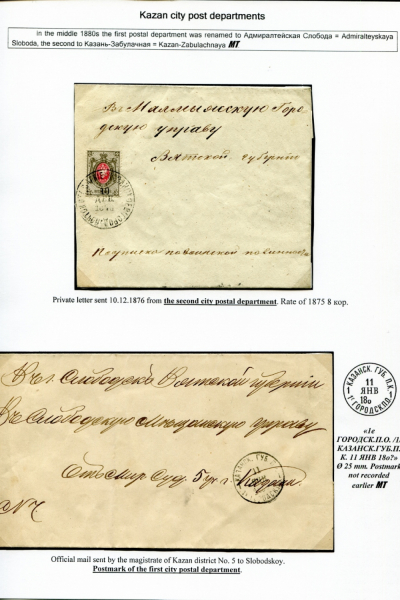 Kazan city post departments
In the middle 1880s the first postal department was renamed to Адмиралтейская Слобода = Admiralteyskaya
Sloboda, the second to Казань-Забулачная = Kazan-Zabulachnaya МТ
Въ Малмыжскую Горо-
дскую управу
Вятской губернiи
10
ДЕК
1876
Private letter sent 10.12.1876 from the second city postal department. Rate of 1875 8 кор.
Въ г. Слободскъ Вятской губернiи
Въ Слободскую Мещанскую управу
Отъ Мир. Суд. 5 уч. г. Казани
КАЗАНСК. ГУБ. П.К.
1 11 1
ЯНВ
18о
1е ГОРОДСК.П.О.
«1е
ГОРОДСК.П.О. /1
КАЗАНСК.ГУБ.П
К. 11 ЯНВ 18о?»
Ø 25 mm. Postmark
not recorded
earlier МТ
Official mail sent by the magistrate of Kazan district No. 5 to Slobodskoy.
Postmark of the first city postal department.